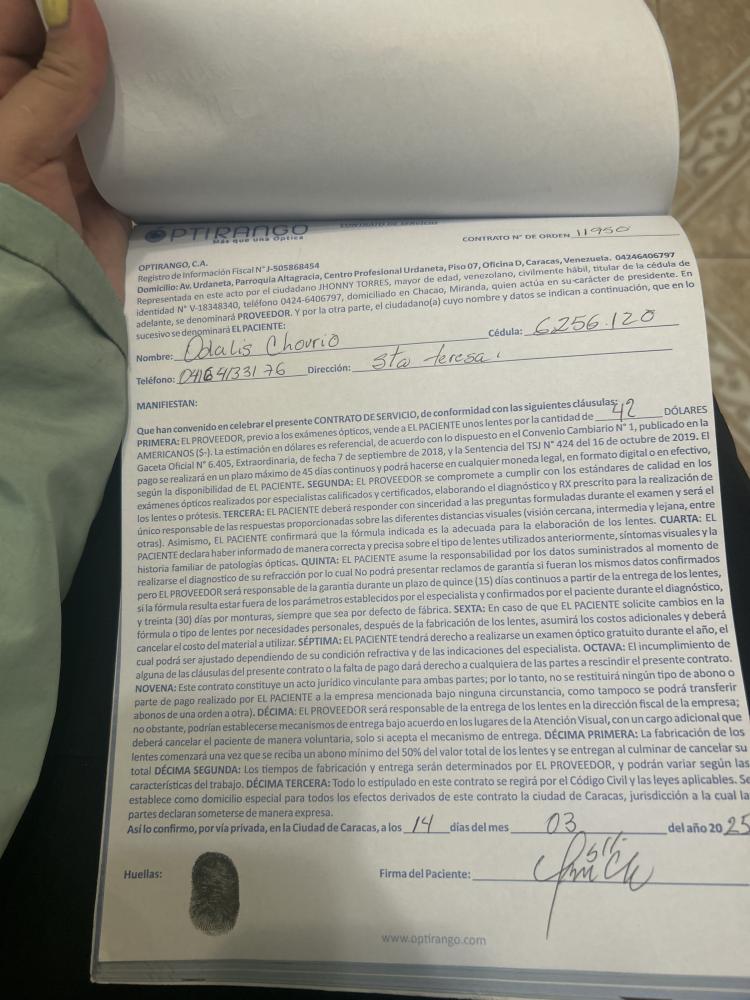 OPTIRANGO
Más que una Óptica
CONTRATO DE SERVICIO
CONTRATO N° DE ORDEN 11950
OPTIRANGO, C.A.
Registro de Información Fiscal N° J-505868454
Domicilio: Av. Urdaneta, Parroquia Altagracia, Centro Profesional Urdaneta, Piso 07, Oficina D, Caracas, Venezuela. 04246406797
Representada en este acto por el ciudadano JHONNY TORRES, mayor de edad, venezolano, civilmente hábil, titular de la cédula de
identidad N° V-18348340, teléfono 0424-6406797, domiciliado en Chacao, Miranda, quien actúa en su carácter de presidente. En
adelante, se denominará PROVEEDOR. Y por la otra parte, el ciudadano(a) cuyo nombre y datos se indican a continuación, que en lo
sucesivo se denominará EL PACIENTE:
Nombre: Odalis Chourio Cédula: 6256.120
Teléfono: 04164133176 Dirección: Sta teresa.
MANIFIESTAN:
Que han convenido en celebrar el presente CONTRATO DE SERVICIO, de conformidad con las siguientes cláusulas:
PRIMERA: EL PROVEEDOR, previo a los exámenes ópticos, vende a EL PACIENTE unos lentes por la cantidad de 42 DÓLARES
AMERICANOS ($-). La estimación en dólares es referencial, de acuerdo con lo dispuesto en el Convenio Cambiario N° 1, publicado en la
Gaceta Oficial N° 6.405, Extraordinaria, de fecha 7 de septiembre de 2018, y la Sentencia del TSJ N° 424 del 16 de octubre de 2019. El
pago se realizará en un plazo máximo de 45 días continuos y podrá hacerse en cualquier moneda legal, en formato digital o en efectivo,
según la disponibilidad de EL PACIENTE. SEGUNDA: EL PROVEEDOR se compromete a cumplir con los estándares de calidad en los
exámenes ópticos realizados por especialistas calificados y certificados, elaborando el diagnóstico y RX prescrito para la realización de
los lentes o prótesis. TERCERA: EL PACIENTE deberá responder con sinceridad a las preguntas formuladas durante el examen y será el
único responsable de las respuestas proporcionadas sobre las diferentes distancias visuales (visión cercana, intermedia y lejana, entre
otras). Asimismo, EL PACIENTE confirmará que la fórmula indicada es la adecuada para la elaboración de los lentes. CUARTA: EL
PACIENTE declara haber informado de manera correcta y precisa sobre el tipo de lentes utilizados anteriormente, síntomas visuales y la
historia familiar de patologías ópticas. QUINTA: EL PACIENTE asume la responsabilidad por los datos suministrados al momento de
realizarse el diagnostico de su refracción por lo cual No podrá presentar reclamos de garantía si fueran los mismos datos confirmados
pero EL PROVEEDOR será responsable de la garantía durante un plazo de quince (15) días continuos a partir de la entrega de los lentes,
si la fórmula resulta estar fuera de los parámetros establecidos por el especialista y confirmados por el paciente durante el diagnóstico,
y treinta (30) días por monturas, siempre que sea por defecto de fábrica. SEXTA: En caso de que EL PACIENTE solicite cambios en la
fórmula o tipo de lentes por necesidades personales, después de la fabricación de los lentes, asumirá los costos adicionales y deberá
cancelar el costo del material a utilizar. SÉPTIMA: EL PACIENTE tendrá derecho a realizarse un examen óptico gratuito durante el año, el
cual podrá ser ajustado dependiendo de su condición refractiva y de las indicaciones del especialista. OCTAVA: El incumplimiento de
alguna de las cláusulas del presente contrato o la falta de pago dará derecho a cualquiera de las partes a rescindir el presente contrato.
NOVENA: Este contrato constituye un acto jurídico vinculante para ambas partes; por lo tanto, no se restituirá ningún tipo de abono o
parte de pago realizado por EL PACIENTE a la empresa mencionada bajo ninguna circunstancia, como tampoco se podrá transferir
abonos de una orden a otra). DÉCIMA: EL PROVEEDOR será responsable de la entrega de los lentes en la dirección fiscal de la empresa;
no obstante, podrían establecerse mecanismos de entrega bajo acuerdo en los lugares de la Atención Visual, con un cargo adicional que
deberá cancelar el paciente de manera voluntaria, solo si acepta el mecanismo de entrega. DÉCIMA PRIMERA: La fabricación de los
lentes comenzará una vez que se reciba un abono mínimo del 50% del valor total de los lentes y se entregan al culminar de cancelar su
total DÉCIMA SEGUNDA: Los tiempos de fabricación y entrega serán determinados por EL PROVEEDOR, y podrán variar según las
características del trabajo. DÉCIMA TERCERA: Todo lo estipulado en este contrato se regirá por el Código Civil y las leyes aplicables. Se
establece como domicilio especial para todos los efectos derivados de este contrato la ciudad de Caracas, jurisdicción a la cual la
partes declaran someterse de manera expresa.
Así lo confirmo, por vía privada, en la Ciudad de Caracas, a los 14 días del mes 03 del año 2025
Huellas: Firma del Paciente:
www.optirango.com